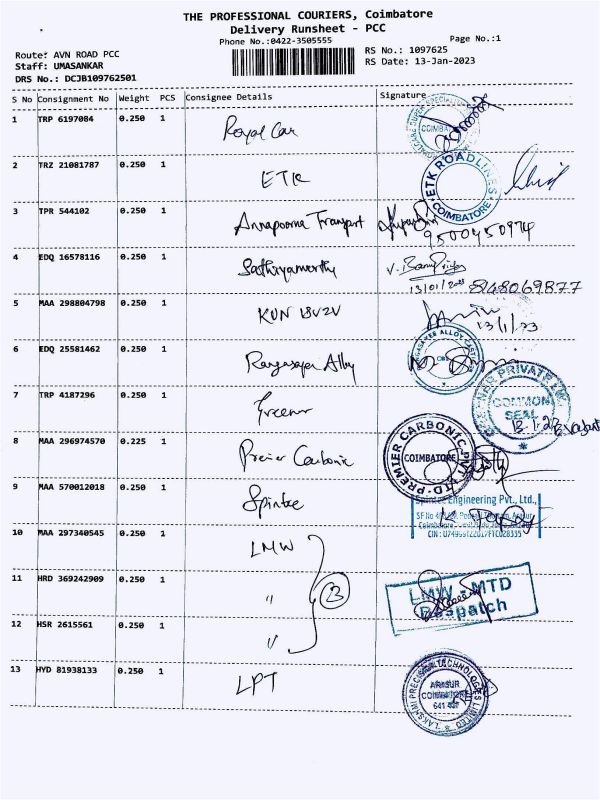 THE PROFESSIONAL COURIERS, Coimbatore
Delivery Runsheet - PCC
Phone No.:0422-3505555
Page No.:1
Route: AVN ROAD PCC
RS No.: 1097625
Staff: UMASANKAR
RS Date: 13-Jan-2023
DRS No.: DCJB109762501
S No Consignment No Weight PCS Consignee Details Signature
1 TRP 6197084 0.250 1 Royal Car
COIMBA
2 TRZ 21081787 0.250 1 ETK
ETK ROADLINES COIMBATORE
3 TPR 544102 0.250 1 Annapoorna Transport
9500450974
4 EDQ 16578116 0.250 1 Sathiyamorthy
13/01/2023 8148069877
5 MAA 298804798 0.250 1 KUN
13/1/23
6 EDQ 25581462 0.250 1 Alloy
ALLOY
7 TRP 4187296 0.250 1
PRIVATE
COMMON
SEAL
8 MAA 296974570 0.225 1 Premier Carbonic
PREMIER CARBONIC PVT LTD
COIMBATORE
9 MAA 570012018 0.250 1 Spintee
Engineering Pvt., Ltd.,
10 MAA 297340545 0.250 1 LMW
11 HRD 369242909 0.250 1 "
3
12 HSR 2615561 0.250 1 "
LMW - MTD
Despatch
13 HYD 81938133 0.250 1 LPT
TECHNOLOGIES LIMITED
ARASUR
COIMBATORE
641 407